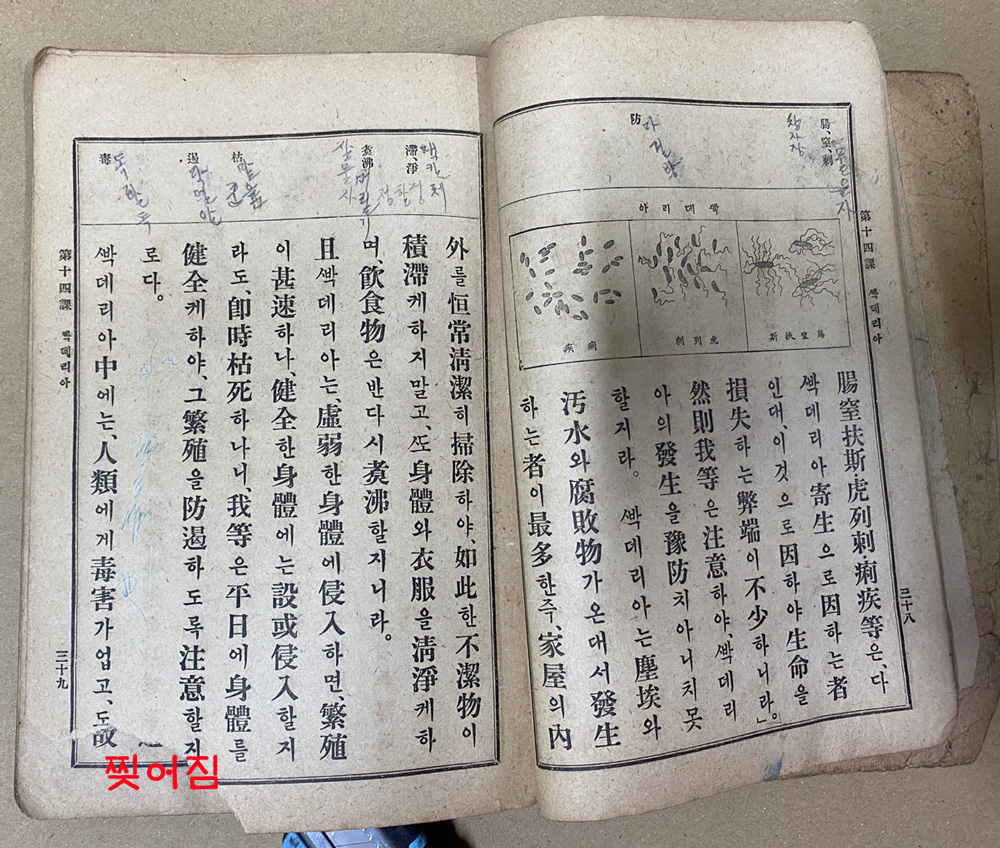 第十四課 ᄲᅢᆨ데리아
三十八
腸、窒、刺
창자장
防
ᄲᅢᆨ데리아
腸窒扶斯
虎列刺
痢疾
腸窒扶斯·虎列刺·痢疾等은、다
ᄲᅢᆨ데리아寄生으로因하는者
인대、이것으로因하야生命을
損失하는弊端이不少하니라」。
然則我等은注意하야、ᄲᅢᆨ데리
아의發生을豫防치아니치못
할지라。ᄲᅢᆨ데리아는塵埃와
汚水와腐敗物가온대서發生
하는者이最多한즉、家屋의內
滯、淨
煑沸
枯
遏
毒
독할독
外를恒常淸潔히掃除하야、如此한不潔物이
積滯케하지말고、ᄯᅩ身體와衣服을淸淨케하
며、飮食物은반다시煑沸할지니라。
且ᄲᅢᆨ데리아는、虛弱한身體에侵入하면、繁殖
이甚速하나、健全한身體에는設或侵入할지
라도、卽時枯死하나니、我等은平日에身體를
健全케하야、그繁殖을防遏하도록注意할지
로다。
ᄲᅢᆨ데리아中에는、人類에게毒害가업고、도로혀
第十四課 ᄲᅢᆨ데리아
三十九
찢어짐